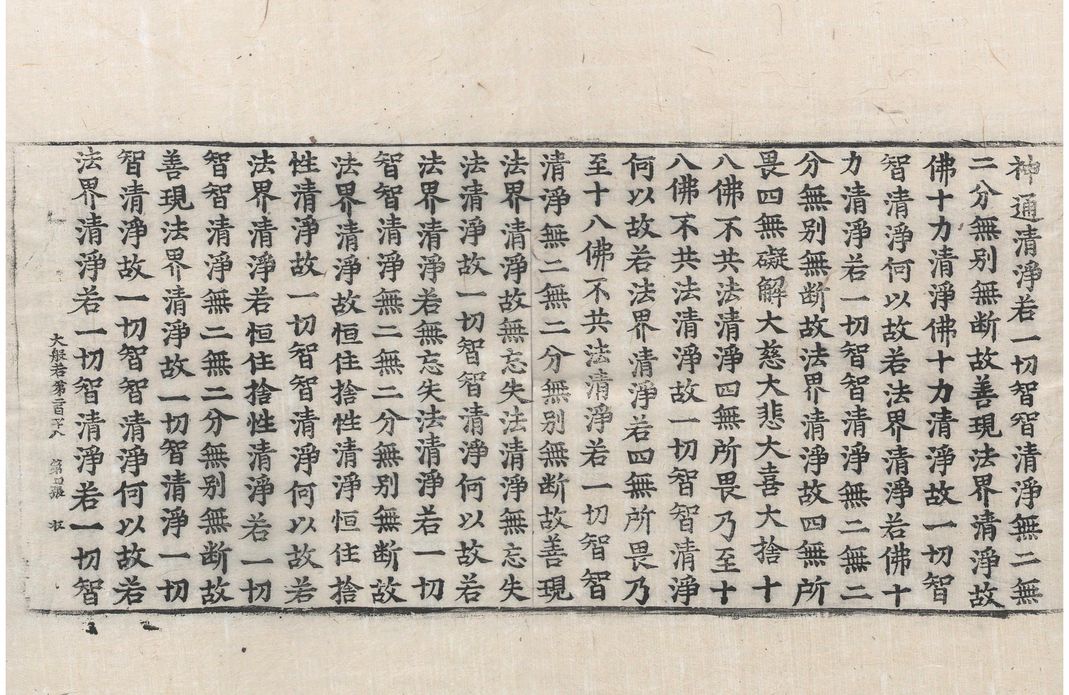 神通清淨若一切智智清淨無二無
二分無別無断故善現法界清淨故
佛十力清淨佛十力清淨故一切智
智清淨何以故若法界清淨若佛十
力清淨若一切智智清淨無二無二
分無別無断故法界清淨故四無所
畏四無礙解大慈大悲大喜大捨十
八佛不共法清淨四無所畏乃至十
八佛不共法清淨故一切智智清淨
何以故若法界清淨若四無所畏乃
至十八佛不共法清淨若一切智智
清淨無二無二分無別無断故善現
法界清淨故無忘失法清淨無忘失
法清淨故一切智智清淨何以故若
法界清淨若無忘失法清淨若一切
智智清淨無二無二分無別無断故
法界清淨故恒住捨性清淨恒住捨
性清淨故一切智智清淨何以故若
法界清淨若恒住捨性清淨若一切
智智清淨無二無二分無別無断故
善現法界清淨故一切智清淨一切
智清淨故一切智智清淨何以故若
法界清淨若一切智清淨若一切智
大般若第 第四張